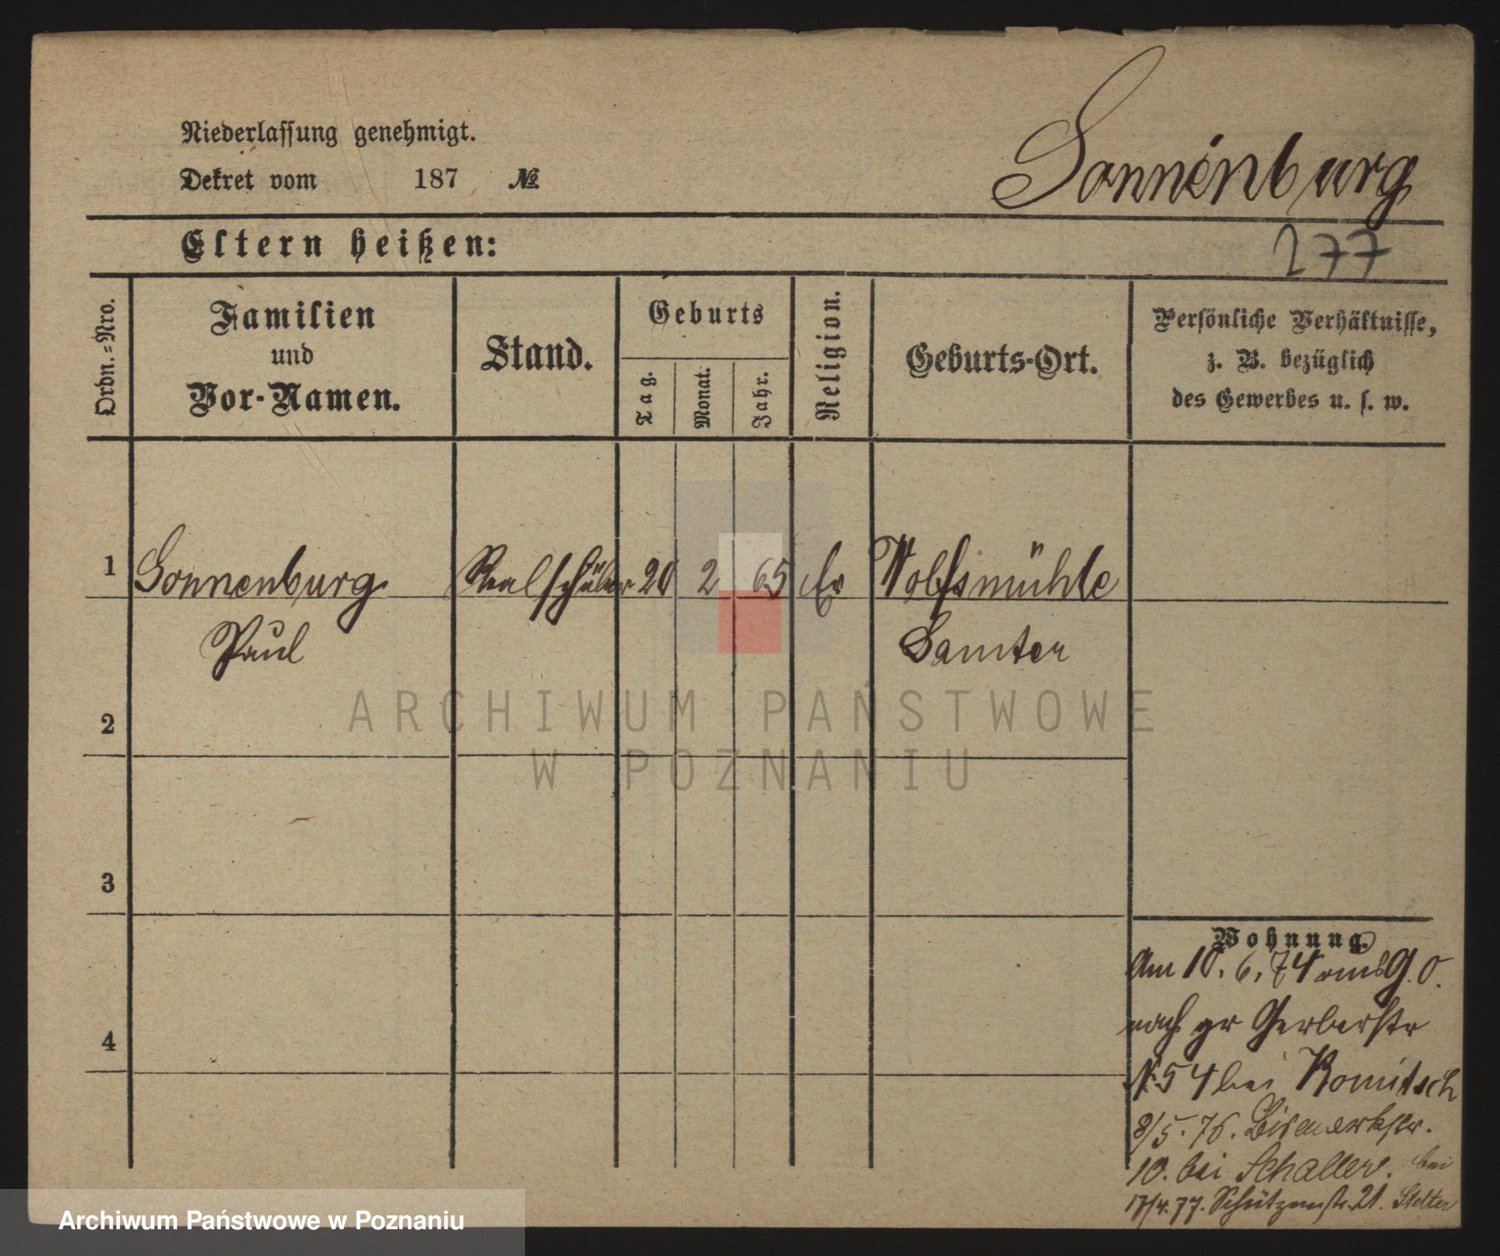 Niederlassung genehmigt.
Dekret vom 187 №
Sonnenburg
277
Eltern heißen:
Ordn.=Nro.
Familien
und
Vor-Namen.
Stand.
Geburts
Tag.
Monat.
Jahr.
Religion.
Geburts-Ort.
Persönliche Verhältnisse,
z. B. bezüglich
des Gewerbes u. s. w.
1 Sonnenburg Realschüler 20 2 65 Ev Wolfsmühle
Paul Samter
2
3
4
Wohnung.
Am 10. 6. 74 aus G. O.
nach gr Gerberstr
№ 54 bei Romitsch
8/5. 76. Bismarkstr.
10. bei Schaller.
17/4. 77. Schützenstr. 21. bei Stelter
ARCHIWUM PAŃSTWOWE
W POZNANIU
Archiwum Państwowe w Poznaniu